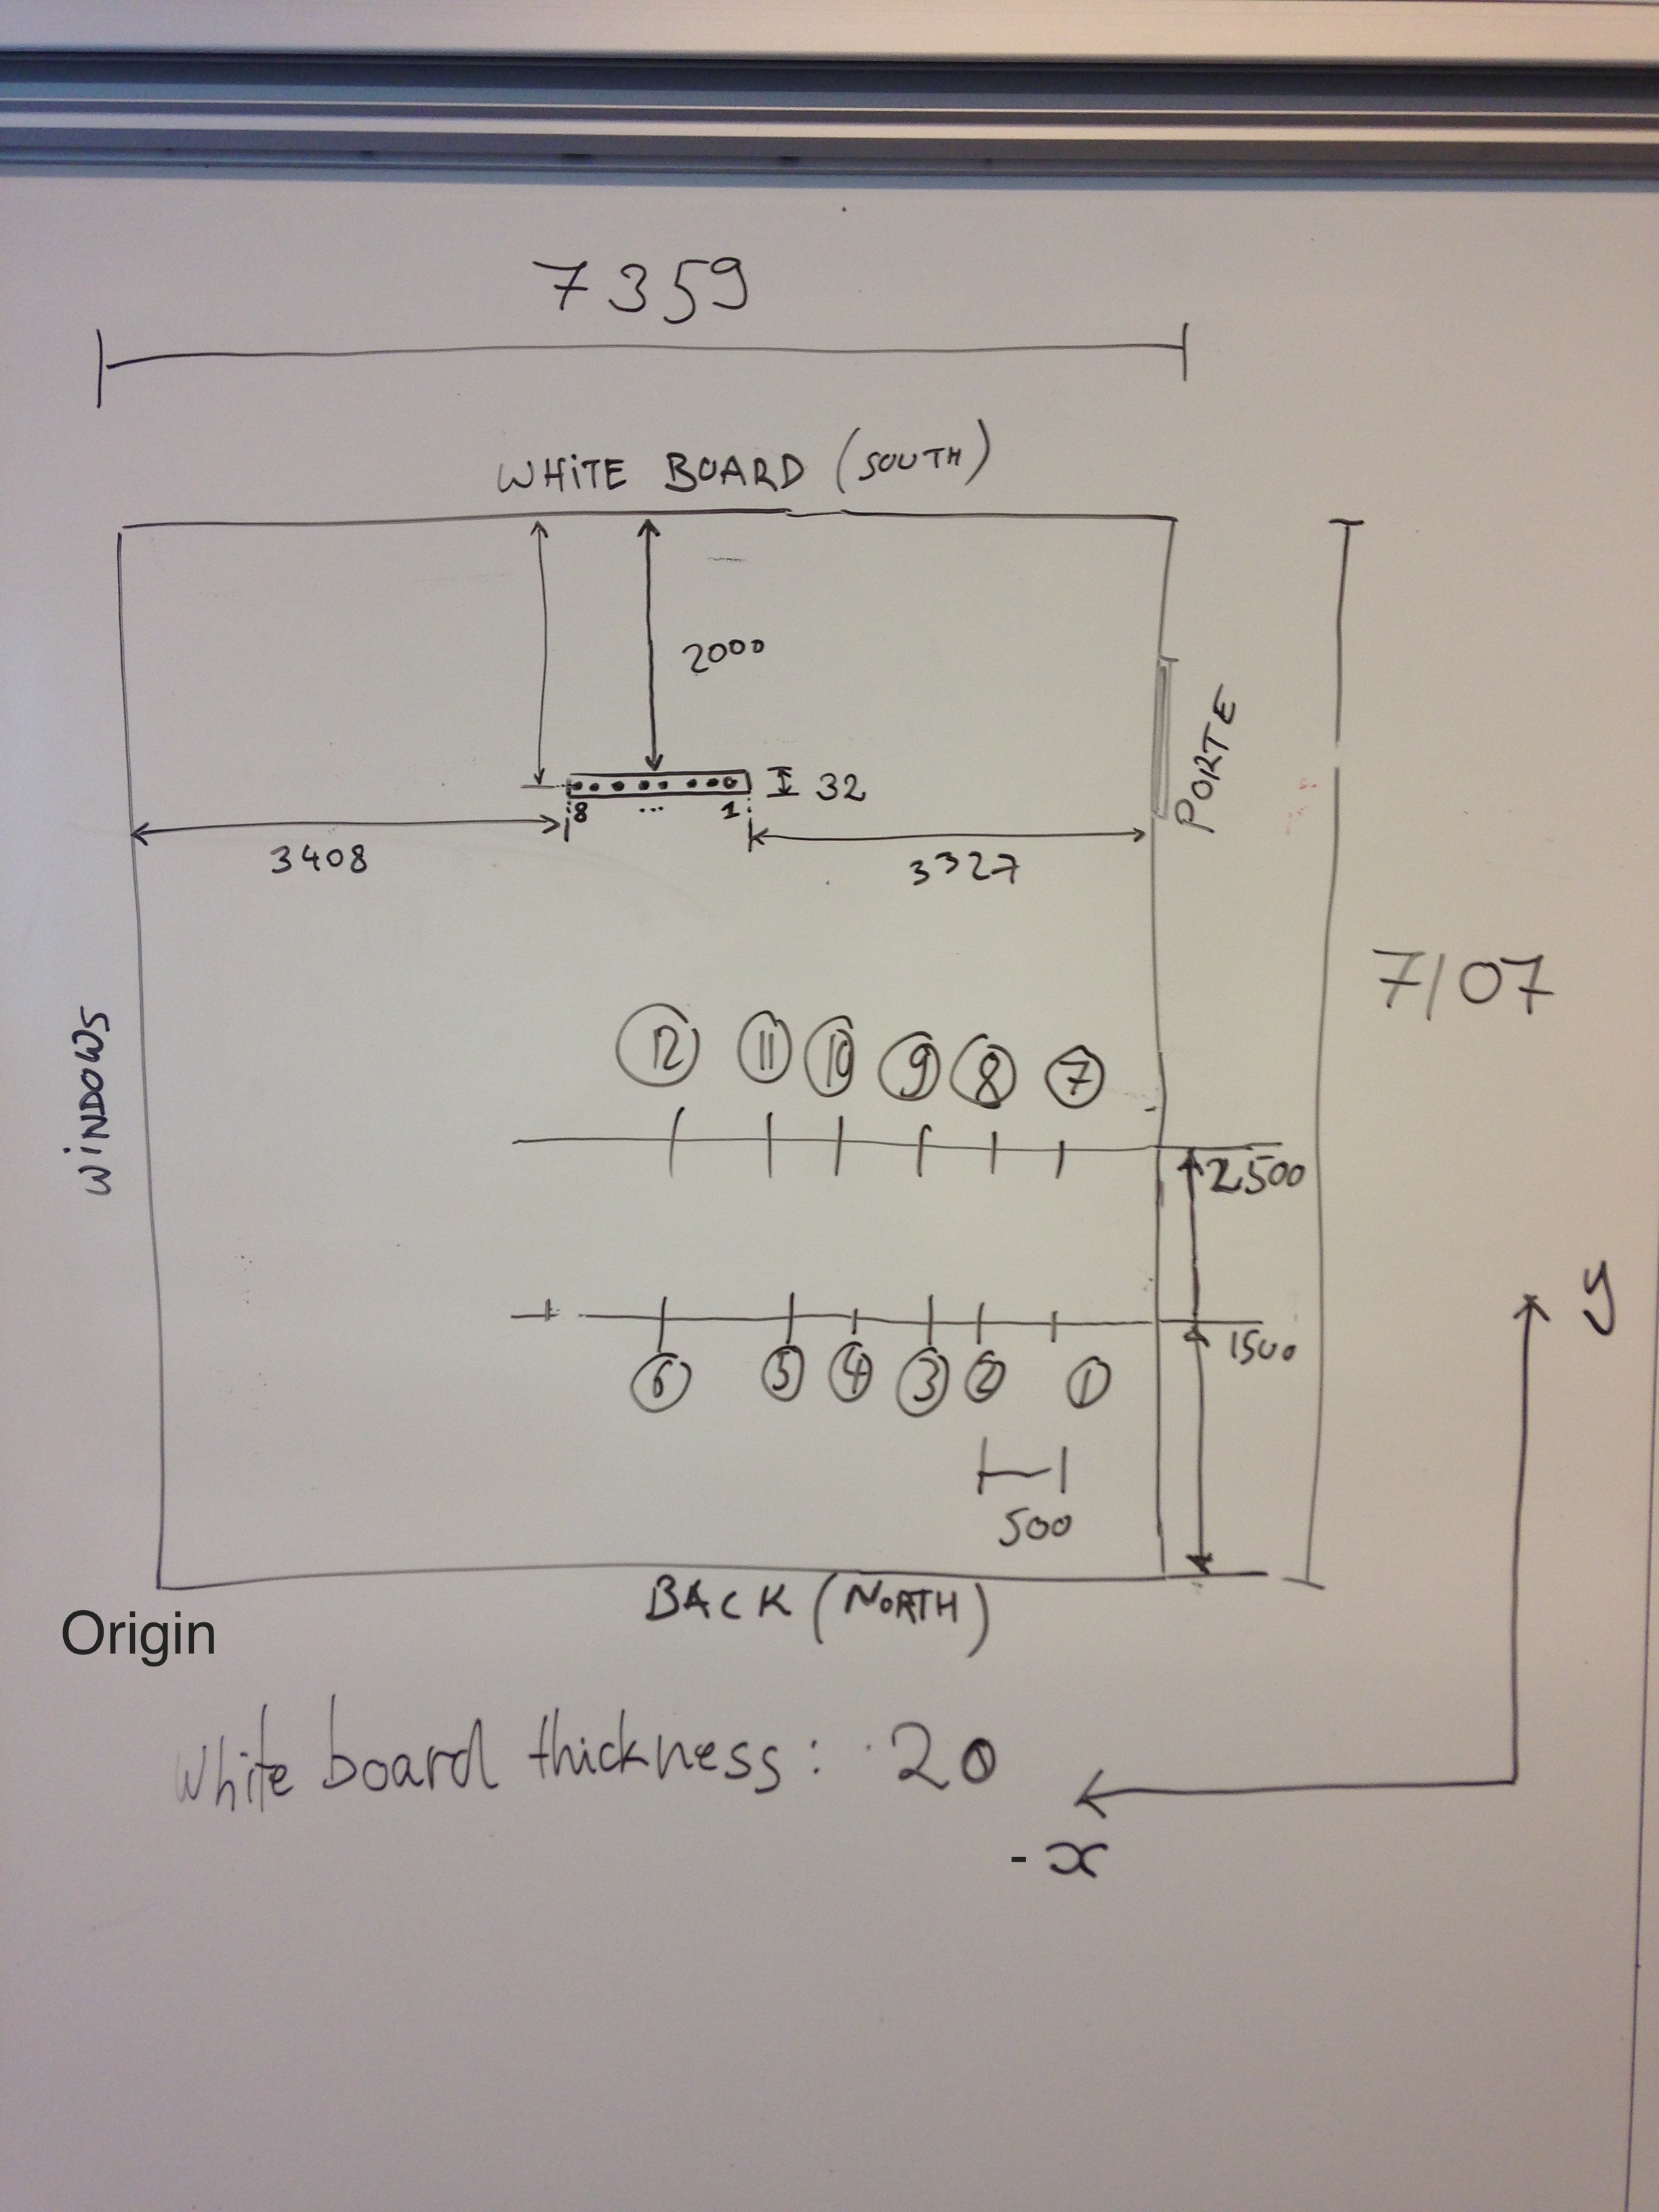 7359
WHiTE BOARD (SOUTH)
2000
32
8 ... 1
3408
3327
PORTE
7107
WINDOWS
12 11 10 9 8 7
2500
1500
6 5 4 3 2 1
500
y
BACK (NORTH)
Origin
White board thickness: 20
- x